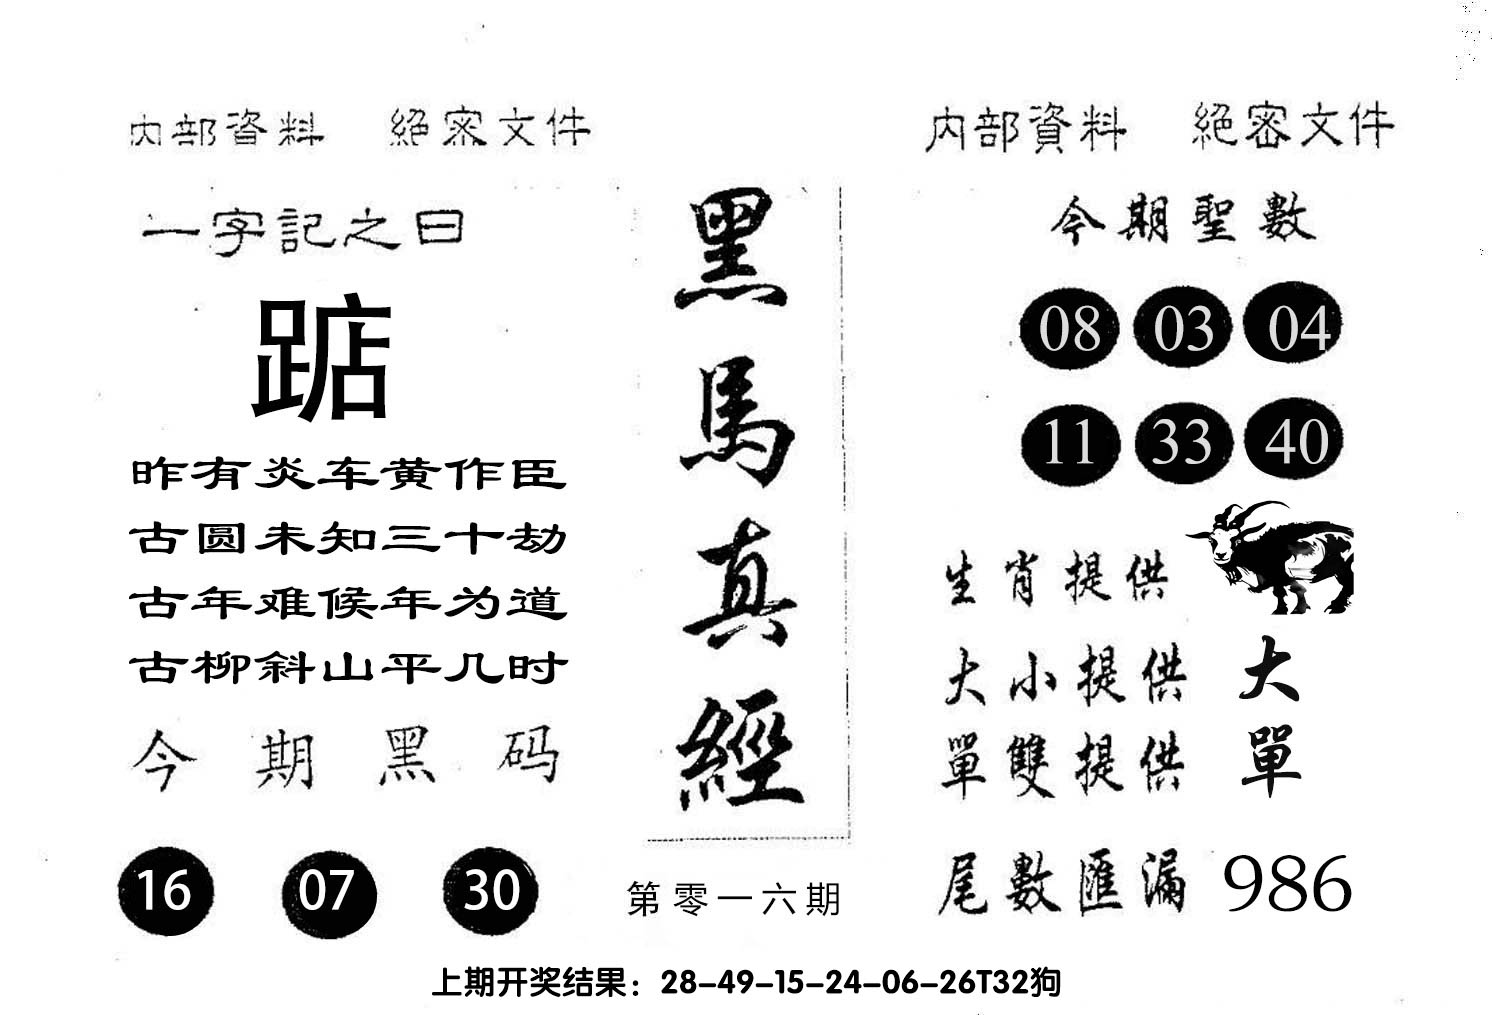 内部資料 絕密文件
一字記之曰
踮
昨有炎车黄作臣
古圆未知三十劫
古年难候年为道
古柳斜山平几时
今期黑码
16 07 30
黑馬真經
第零一六期
内部資料 絕密文件
今期聖數
08 03 04
11 33 40
生肖提供
大小提供 大
單雙提供 單
尾數匯漏 986
上期开奖结果：28-49-15-24-06-26T32狗